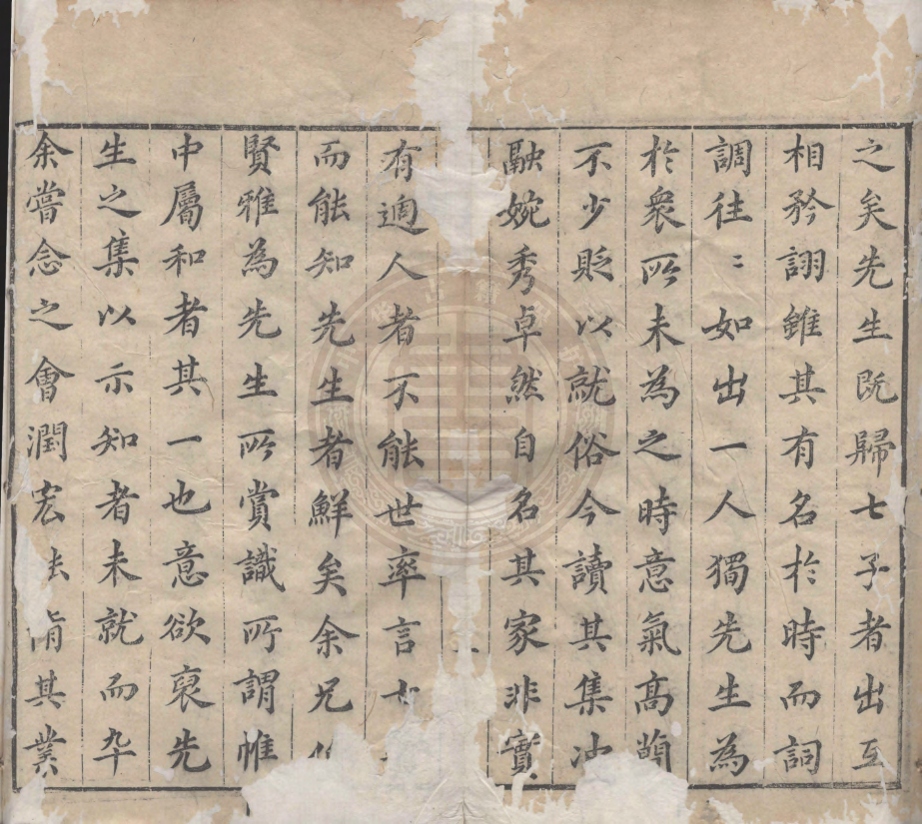 之矣先生既歸七子者出互
相矜詡雖其有名於時而詞
調往〻如出一人獨先生為
於衆所未為之時意氣高簡
不少貶以就俗今讀其集冲
融婉秀卓然自名其家非實
有適人者不能世率言
而能知先生者鮮矣余兄
賢雅為先生所賞識所謂帷
中屬和者其一也意欲裒先
生之集以示知者未就而卒
余嘗念之會潤宏 其業